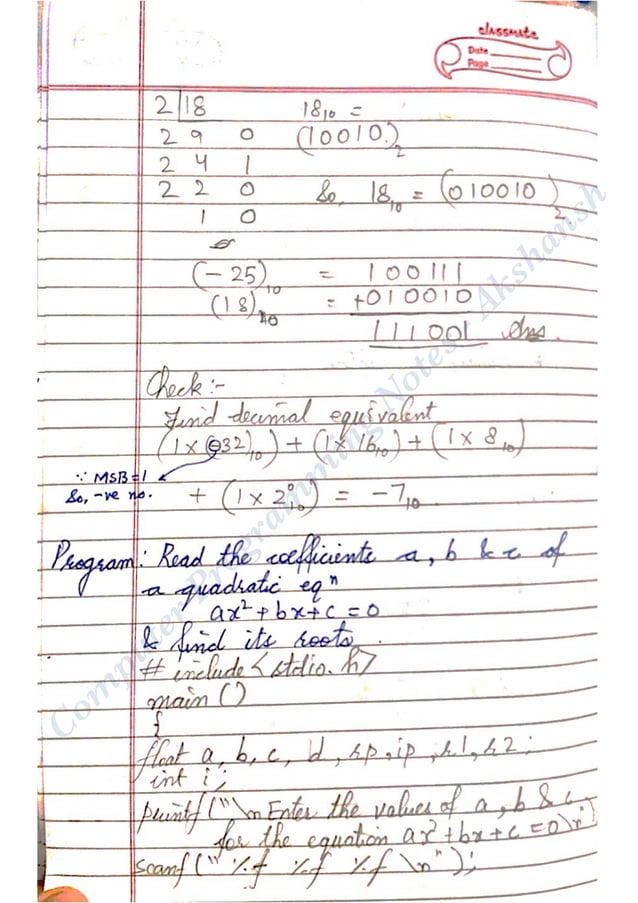 classmate
Date
Page
2 | 18 18₁₀ =
2 9 0 (10010.)₂
2 4 1
2 2 0 So, 18₁₀ = (010010)₂
1 0
(-25)₁₀ = 100111
(18)₁₀ = +010010
111001 Ans.
Check:-
Find decimal equivalent
(1 × (-)32)₁₀) + (1 × 16₁₀) + (1 × 8₁₀)
∵ MSB=1
So, -ve no.
+ (1 × 2⁰₁₀) = -7₁₀
Program: Read the coefficients a, b & c of
a quadratic eqⁿ
ax² + bx + c = 0
& find its roots.
# include <stdio.h>
main ()
{
float a, b, c, d, rp, ip, r1, r2;
int i;
printf ("\n Enter the values of a, b & c
for the equation ax² + bx + c = 0 \n")
scanf (" %f %f %f \n");
Computer Programming Notes Akshansh